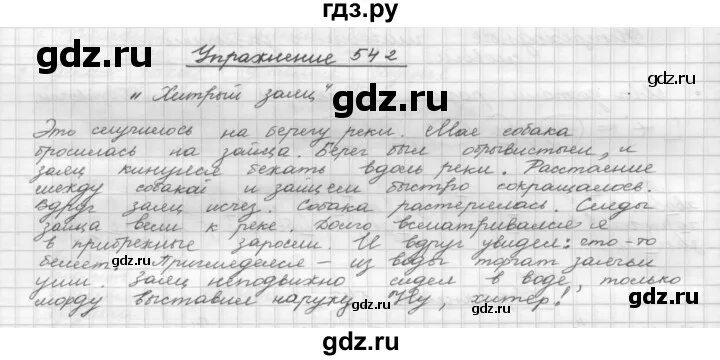 гдз.ру
Упражнение 542
„Хитрый заяц"
Это случилось на берегу реки. Моя собака
бросилась на зайца. Берег был обрывистым, и
заяц кинулся бежать вдоль реки. Расстояние
между собакой и зайцем быстро сокращалось.
Вдруг заяц исчез. Собака растерялась. Следы
зайца вели к реке. Долго всматривался я
в прибрежные заросли. И вдруг увидел: что-то
белеет. Пригляделся – из воды торчат заячьи
уши. Заяц неподвижно сидел в воде, только
морду выставил наружу. Ну, хитёр!
gdz.ru gdz.ru gdz.ru
gdz.ru gdz.ru
gdz.ru gdz.ru gdz.ru
gdz.ru gdz.ru
gdz.ru